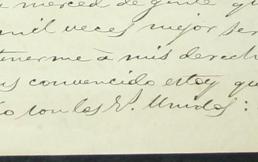 a merced de gente qu
mil veces mejor ser
tenerme á mis derech
as convencido estoy qu
to con los Es. Unidos: